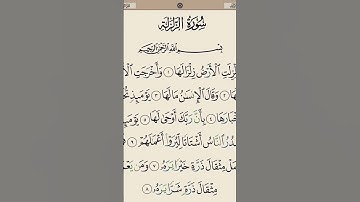 سُورَةُ الزَّلْزَلَةِ
بِسْمِ اللَّهِ الرَّحْمَٰنِ الرَّحِيمِ
زُلْزِلَتِ الْأَرْضُ زِلْزَالَهَا ١ وَأَخْرَجَتِ الْأ
لَهَا ٢ وَقَالَ الْإِنسَٰنُ مَا لَهَا ٣ يَوْمَئِذٍ تُح
خْبَارَهَا ٤ بِأَنَّ رَبَّكَ أَوْحَىٰ لَهَا ٥ يَوْمَئِذٍ
دُرُ النَّاسُ أَشْتَاتًا لِّيُرَوْا أَعْمَٰلَهُمْ ٦
مَلْ مِثْقَالَ ذَرَّةٍ خَيْرًا يَرَهُ ٧ وَمَن يَعْمَ
مِثْقَالَ ذَرَّةٍ شَرًّا يَرَهُ ٨